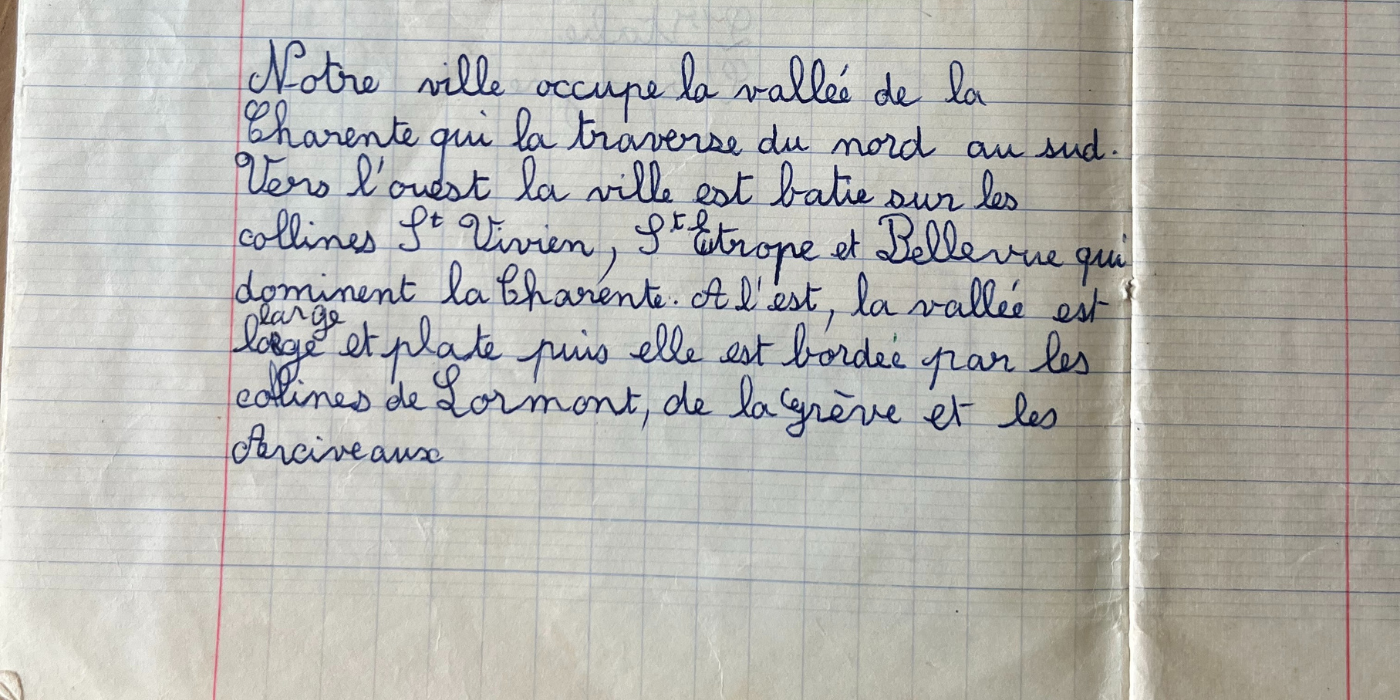 Notre ville occupe la vallée de la
Charente qui la traverse du nord au sud.
Vers l'ouest la ville est batie sur les
collines St Vivien, St Eutrope et Bellevue qui
dominent la Charente. A l'est, la vallée est
large
large et plate puis elle est bordée par les
collines de Lormont, de la Grève et les
Arciveaux